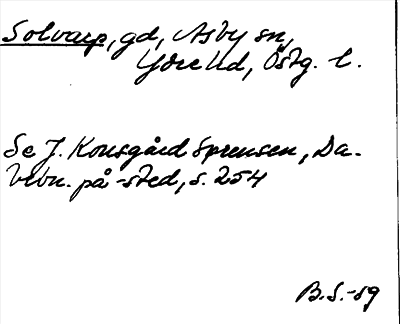 Solvarp, gd, Asby sn,
Ydre hd, Östg. l.
Se J. Kousgård Sørensen, Da.
bebn. på -sted, s. 254
B.S.-59